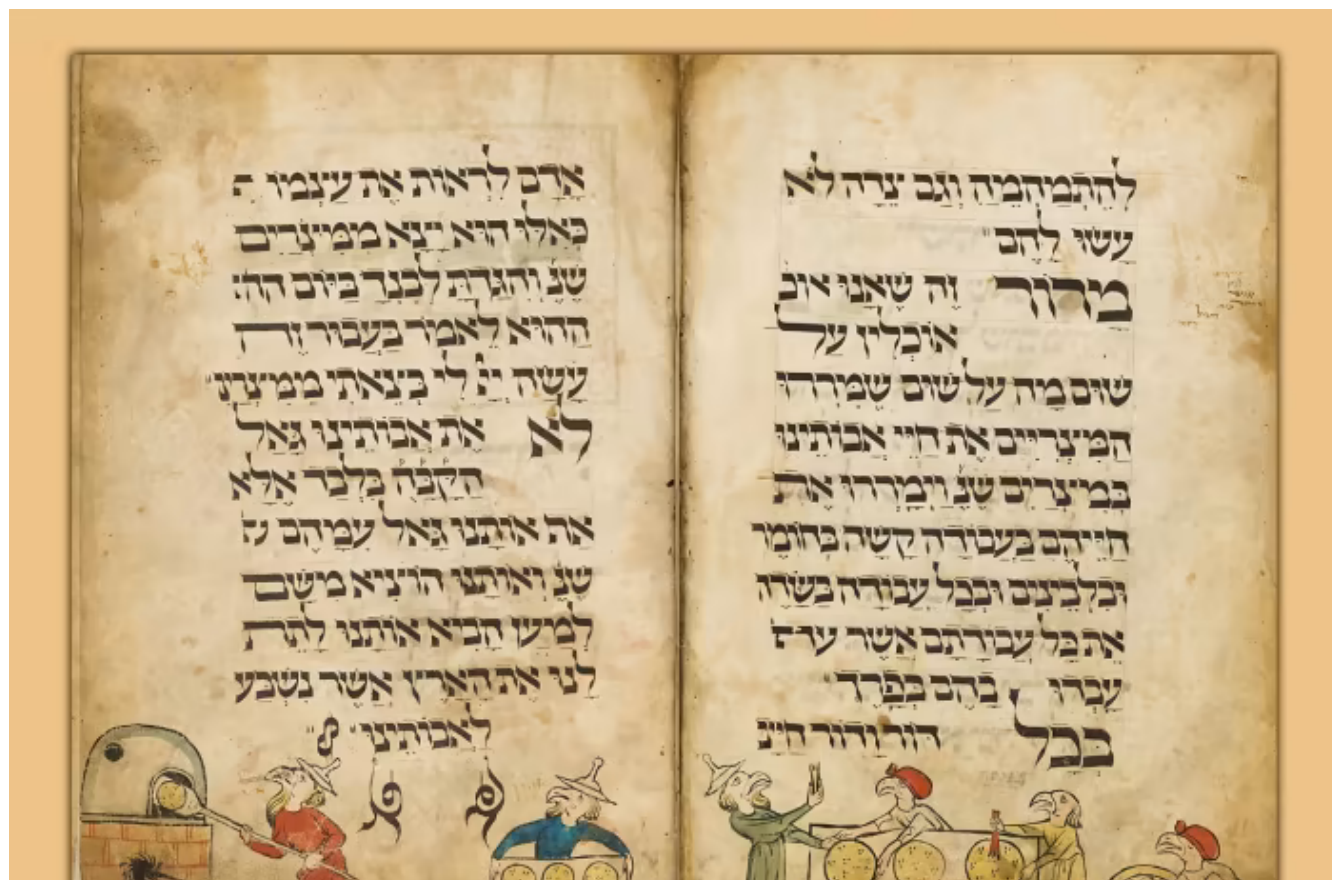 להתמהמה וגם צדה לא
עשו להם
מרור זה שאנו אוכ
אוכלין על
שום מה על שום שמררו
המצריים את חיי אבותינו
במצרים שנ וימררו את
חייהם בעבודה קשה בחומר
ובלבינים ובכל עבודה בשדה
את כל עבודתם אשר
עבדו בהם בפרך
בכל דור ודור חייב
אדם לראות את עצמו
כאלו הוא יצא ממצרים
שנ והגדת לבנך ביום הה
ההוא לאמר בעבור זה
עשה ייי לי בצאתי ממצרים
לא את אבותינו גאל
הקבה בלבד אלא
את אותנו גאל עמהם
שנ ואותנו הוציא משם
למען הביא אותנו לתת
לנו את הארץ אשר נשבע
לאבותינו